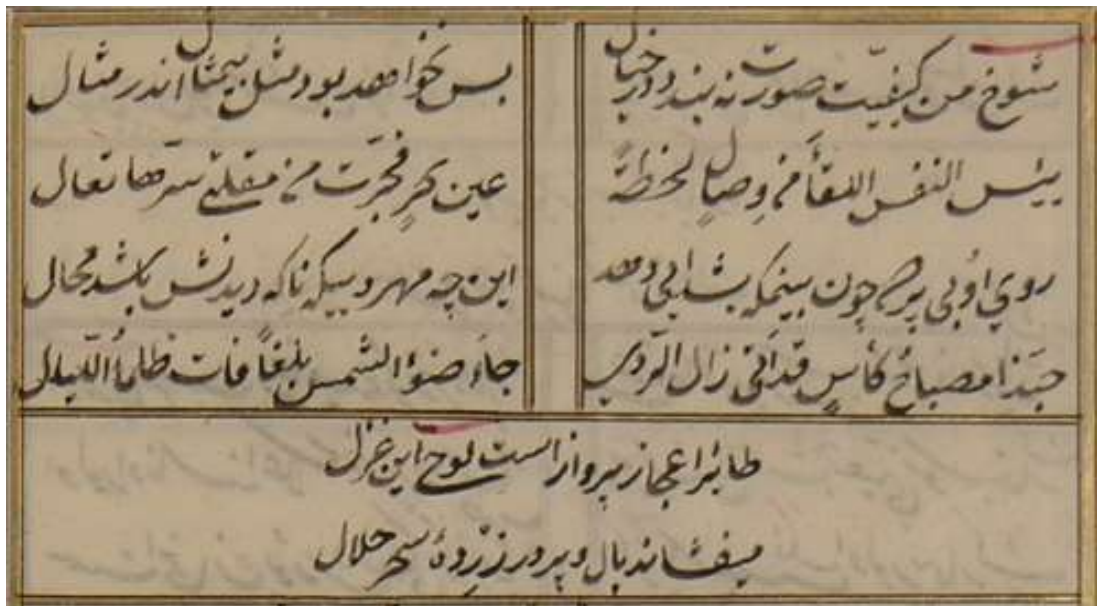 شوخ من کیفیّت صورت نه بندد در خیال
بس نخواهد بود مثل بیمثال اندر مثال
یئس النفس اللقاء من وصالٍ لحظة
عین بحرٍ فجرت من مقلتی تعال
روی او بی پرده چون بینم که بیتابی دهد
این چه مهرویی که ناکه دیدنش باشد محال
حبّذا مصباح کأسٍ قد اتی زال الردی
جاء ضوء الشمس فات ظلماء اللیال
طائر اعجاز پرواز است لوح این غزل
میفشاند بال و پر ور زردهٔ سحر حلال